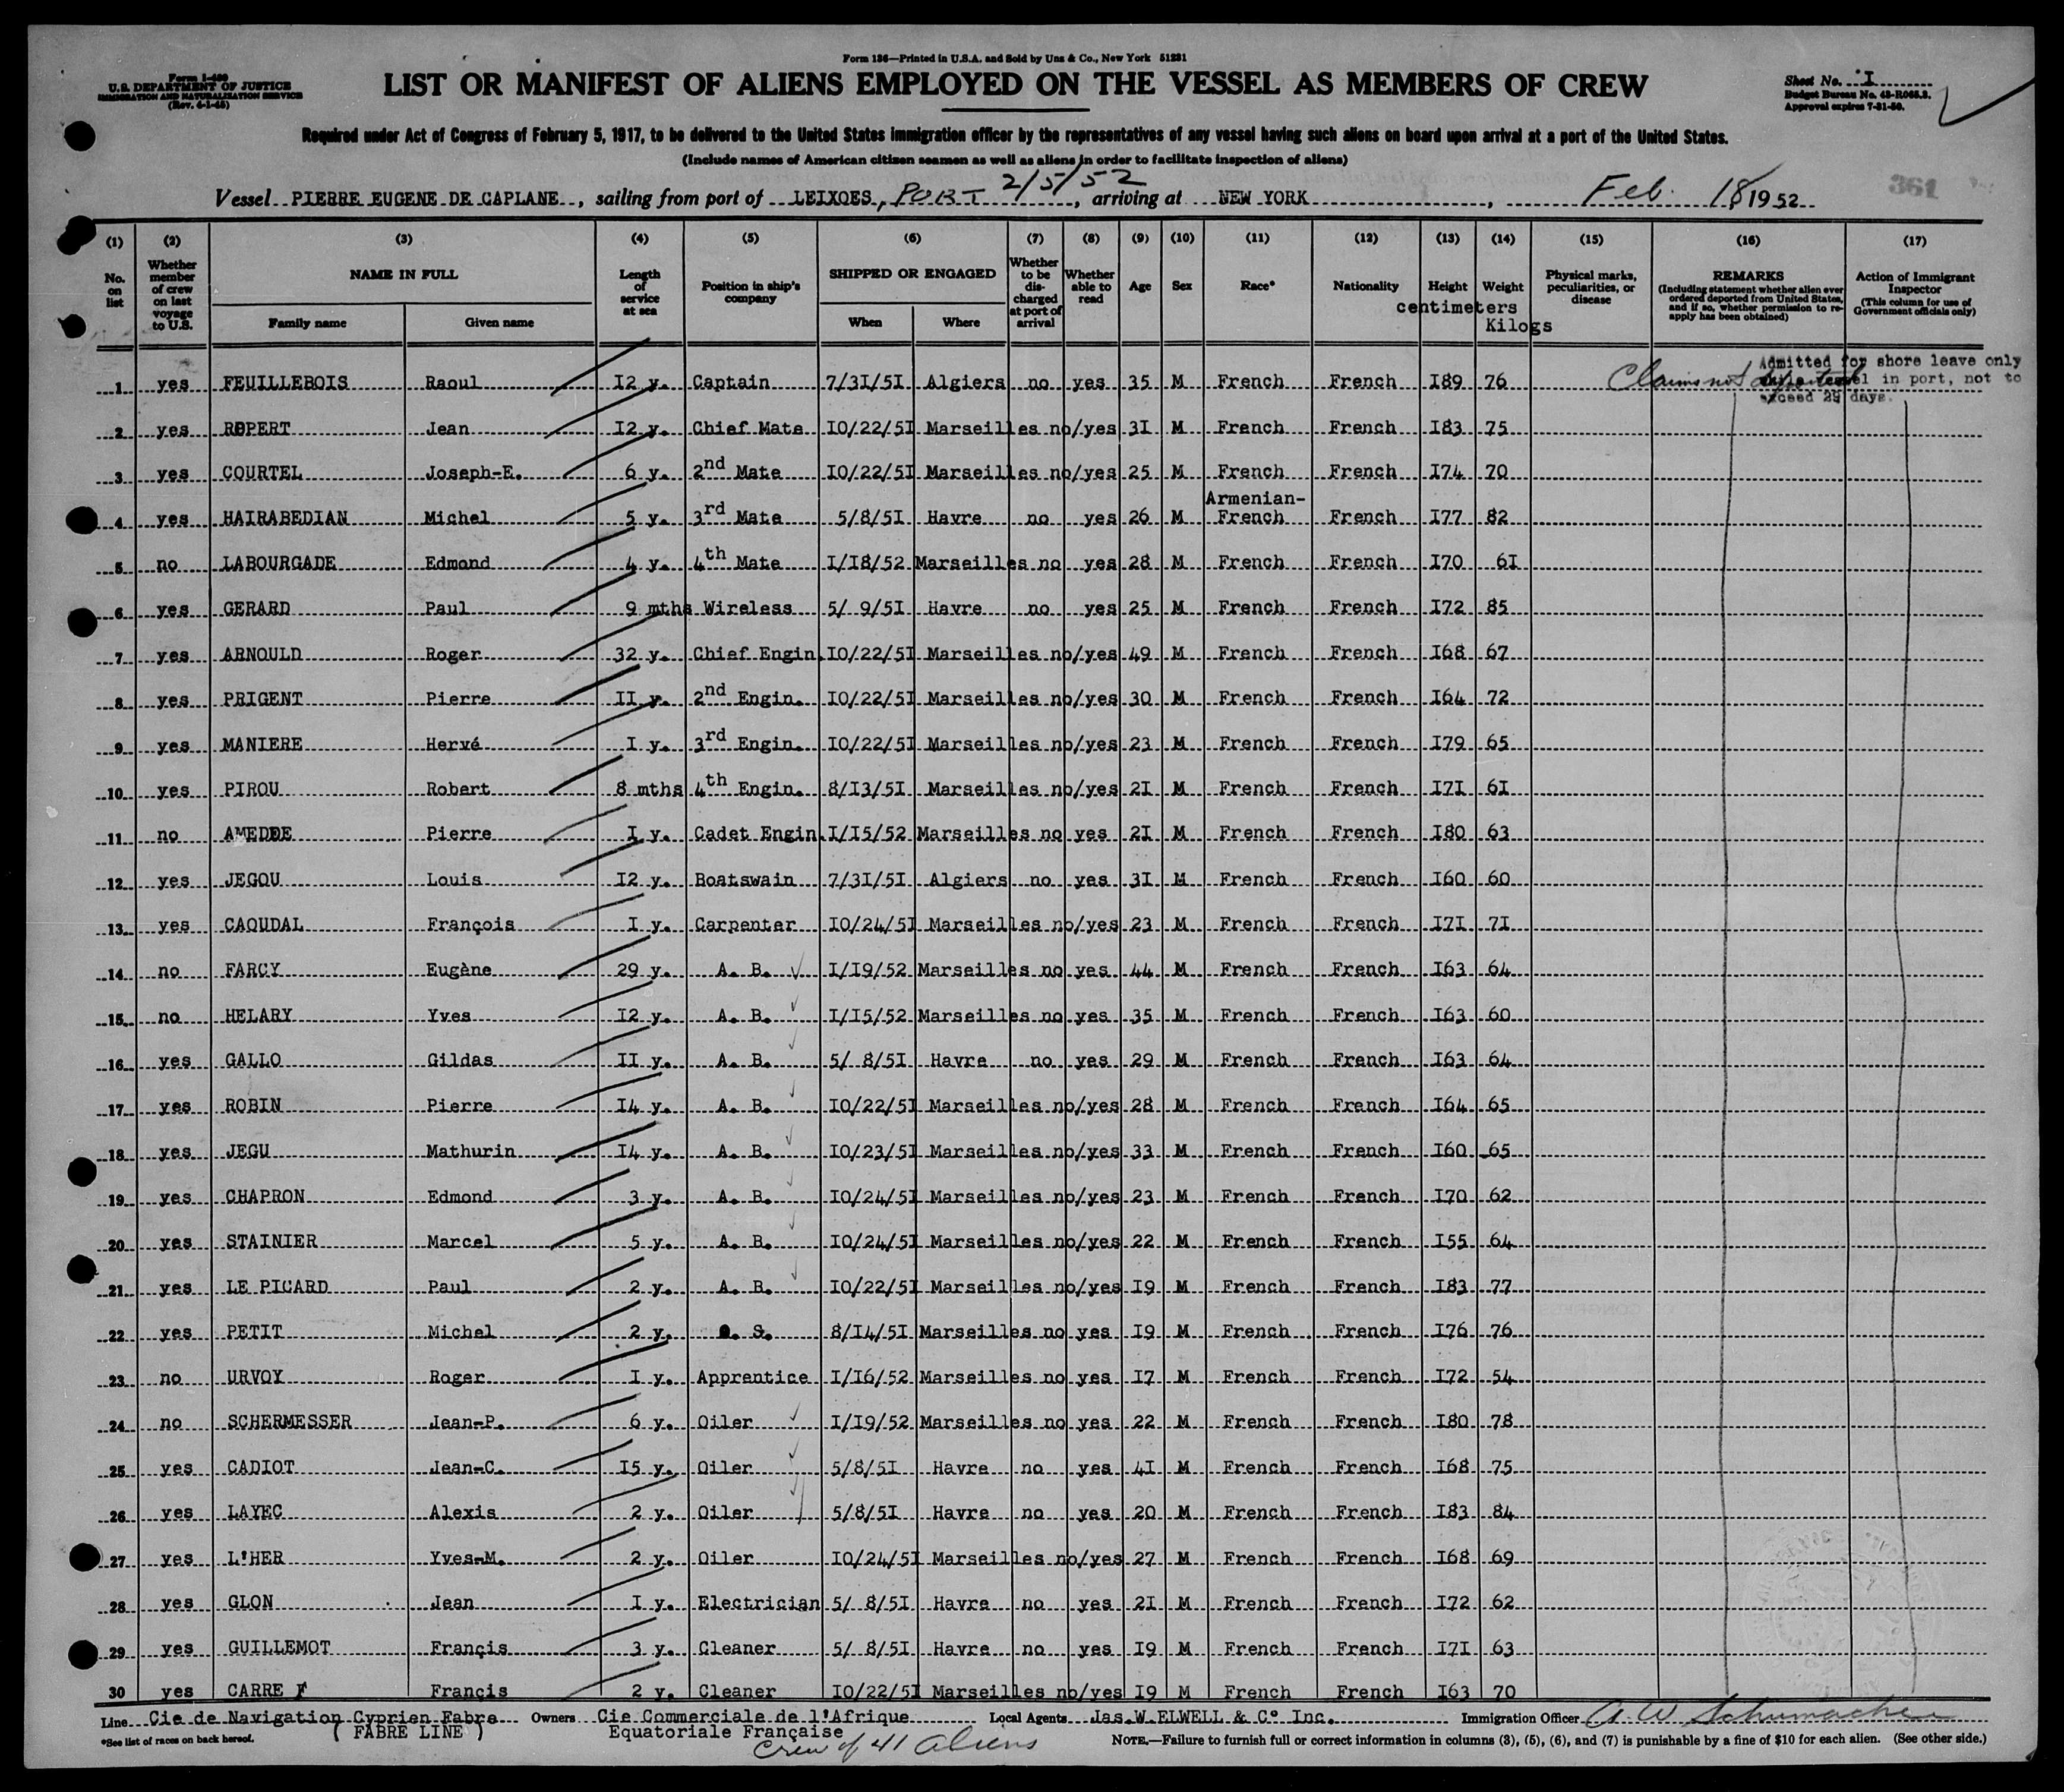 Form 136—Printed in U.S.A. and Sold by Unz & Co., New York 51231
Form I-480
U.S. DEPARTMENT OF JUSTICE
IMMIGRATION AND NATURALIZATION SERVICE
(Rev. 4-1-48)
LIST OR MANIFEST OF ALIENS EMPLOYED ON THE VESSEL AS MEMBERS OF CREW
Sheet No. I
Budget Bureau No. 43-R065.3.
Approval expires 7-31-50.
Required under Act of Congress of February 5, 1917, to be delivered to the United States immigration officer by the representatives of any vessel having such aliens on board upon arrival at a port of the United States.
(Include names of American citizen seamen as well as aliens in order to facilitate inspection of aliens)
Vessel PIERRE EUGENE DE CAPLANE, sailing from port of LEIXOES, PORT 2/5/52, arriving at NEW YORK, Feb. 18, 1952
361
(1) (2) (3) (4) (5) (6) (7) (8) (9) (10) (11) (12) (13) (14) (15) (16) (17)
No. on list
Whether member of crew on last voyage to U.S.
NAME IN FULL
Family name Given name
Length of service at sea
Position in ship's company
SHIPPED OR ENGAGED
When Where
Whether to be discharged at port of arrival
Whether able to read
Age Sex Race* Nationality Height Weight
centimeters
Kilogs
Physical marks, peculiarities, or disease
REMARKS
(Including statement whether alien ever ordered deported from United States, and if so, whether permission to reapply has been obtained)
Action of Immigrant Inspector
(This column for use of Government officials only)
Admitted for shore leave only
Claims not deported
vessel in port, not to
exceed 29 days.
1 yes FEUILLEBOIS Raoul I2 y. Captain 7/3I/5I Algiers no yes 35 M French French I89 76
2 yes ROPERT Jean I2 y. Chief Mate I0/22/5I Marseilles no/yes 3I M French French I83 75
3 yes COURTEL Joseph-E. 6 y. 2nd Mate I0/22/5I Marseilles no/yes 25 M French French I74 70
4 yes HAIRABEDIAN Michel 5 y. 3rd Mate 5/8/5I Havre no yes 26 M Armenian-French French I77 82
5 no LABOURGADE Edmond 4 y. 4th Mate I/I8/52 Marseilles no yes 28 M French French I70 6I
6 yes GERARD Paul 9 mths Wireless 5/ 9/5I Havre no yes 25 M French French I72 85
7 yes ARNOULD Roger 32 y. Chief Engin. I0/22/5I Marseilles no/yes 49 M French French I68 67
8 yes PRIGENT Pierre II y. 2nd Engin. I0/22/5I Marseilles no/yes 30 M French French I64 72
9 yes MANIERE Hervé I y. 3rd Engin. I0/22/5I Marseilles no/yes 23 M French French I79 65
10 yes PIROU Robert 8 mths 4th Engin. 8/I3/5I Marseilles no/yes 2I M French French I7I 6I
11 no AMEDEE Pierre I y. Cadet Engin. I/I5/52 Marseilles no yes 2I M French French I80 63
12 yes JEGOU Louis I2 y. Boatswain 7/3I/5I Algiers no yes 3I M French French I60 60
13 yes CAOUDAL François I y. Carpenter I0/24/5I Marseilles no/yes 23 M French French I7I 7I
14 no FARCY Eugène 29 y. A. B. I/I9/52 Marseilles no yes 44 M French French I63 64
15 no HELARY Yves I2 y. A. B. I/I5/52 Marseilles no yes 35 M French French I63 60
16 yes GALLO Gildas II y. A. B. 5/ 8/5I Havre no yes 29 M French French I63 64
17 yes ROBIN Pierre I4 y. A. B. I0/22/5I Marseilles no/yes 28 M French French I64 65
18 yes JEGU Mathurin I4 y. A. B. I0/23/5I Marseilles no/yes 33 M French French I60 65
19 yes CHAPRON Edmond 3 y. A. B. I0/24/5I Marseilles no/yes 23 M French French I70 62
20 yes STAINIER Marcel 5 y. A. B. I0/24/5I Marseilles no/yes 22 M French French I55 64
21 yes LE PICARD Paul 2 y. A. B. I0/22/5I Marseilles no/yes I9 M French French I83 77
22 yes PETIT Michel 2 y. O. S. 8/I4/5I Marseilles no yes I9 M French French I76 76
23 no URVOY Roger I y. Apprentice I/I6/52 Marseilles no yes I7 M French French I72 54
24 no SCHERMESSER Jean-P. 6 y. Oiler I/I9/52 Marseilles no yes 22 M French French I80 78
25 yes CADIOT Jean-C. I5 y. Oiler 5/8/5I Havre no yes 4I M French French I68 75
26 yes LAYEC Alexis 2 y. Oiler 5/8/5I Havre no yes 20 M French French I83 84
27 yes L'HER Yves-M. 2 y. Oiler I0/24/5I Marseilles no/yes 27 M French French I68 69
28 yes GLON Jean I y. Electrician 5/ 8/5I Havre no yes 2I M French French I72 62
29 yes GUILLEMOT Françis 3 y. Cleaner 5/ 8/5I Havre no yes I9 M French French I7I 63
30 yes CARRE F Françis 2 y. Cleaner I0/22/5I Marseilles no/yes I9 M French French I63 70
Line Cie de Navigation Cyprien Fabre Owners Cie Commerciale de l'Afrique Local Agents Jas.W.ELWELL & C° Inc. Immigration Officer A W Schumacher
( FABRE LINE ) Equatoriale Française
*See list of races on back hereof.
Crew of 41 Aliens
NOTE.—Failure to furnish full or correct information in columns (3), (5), (6), and (7) is punishable by a fine of $10 for each alien. (See other side.)